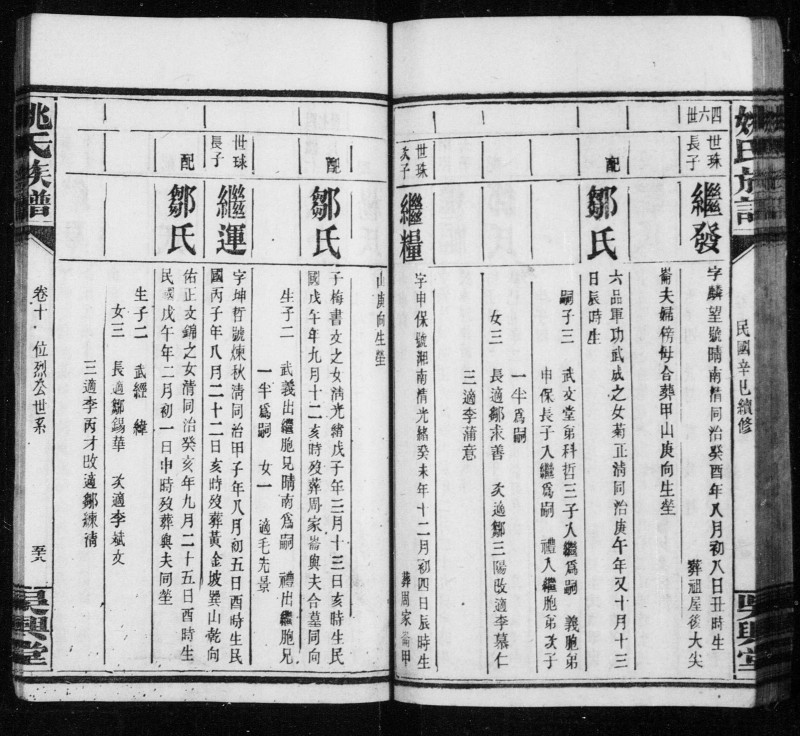 姚氏族譜
民國辛巳續修
吳興堂
四六世
世珠長子
繼發
字麟望號晴南清同治癸酉年八月初八日丑時生
葬祖屋後大尖
崙夫婦傍母合葬甲山庚向生塋
配
鄒氏
六品軍功武成之女菊正清同治庚午年又十月十三
日辰時生
嗣子三 武文堂弟科哲三子入繼爲嗣 義胞弟
申保長子入繼爲嗣 禮入繼胞弟次子
一半爲嗣
女三 長適鄒求善 次適鄒三陽改適李慕仁
三適李蒲意
世珠次子
繼糧
字申保號湖南清光緒癸未年十二月初四日辰時生
葬周家崙甲
山庚向生塋
配
鄒氏
子梅書文之女清光緒戊子年三月十三日亥時生民
國戊午年九月十二亥時歿葬周家崙與夫合墓同向
生子二 武義出繼胞兄晴南爲嗣 禮出繼胞兄
一半爲嗣 女一 適毛先景
世球長子
繼運
字坤哲號煉秋清同治甲子年八月初五日酉時生民
國丙子年八月二十二日亥時歿葬黃金坡巽山乾向
配
鄒氏
佑正文錦之女清同治癸亥年九月二十五日酉時生
民國戊午年二月初一日申時歿葬與夫同塋
生子二 武經 緯
女三 長適鄒錫華 次適李斌文
三適李丙才改適鄒練清
姚氏族譜
卷十 位烈公世系
吳興堂